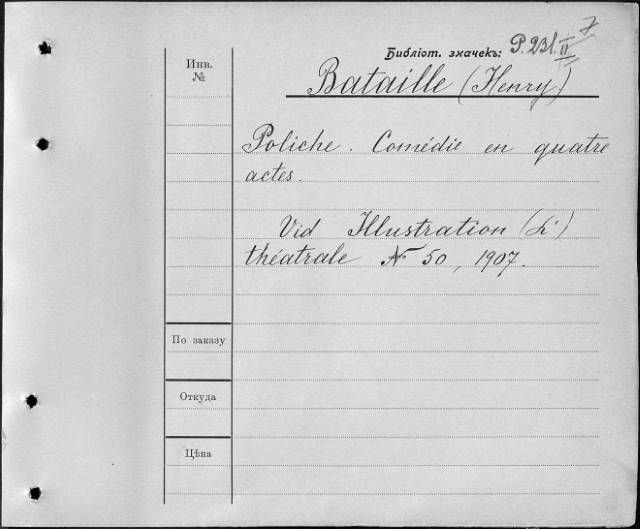 Библіот. значекъ: P. 231. II 7
Инв.
№
Bataille (Henry)
Poliche. Comédie en quatre
actes.
Vid Illustration (L')
théatrale N 50, 1907.
По заказу
Откуда
Цѣна